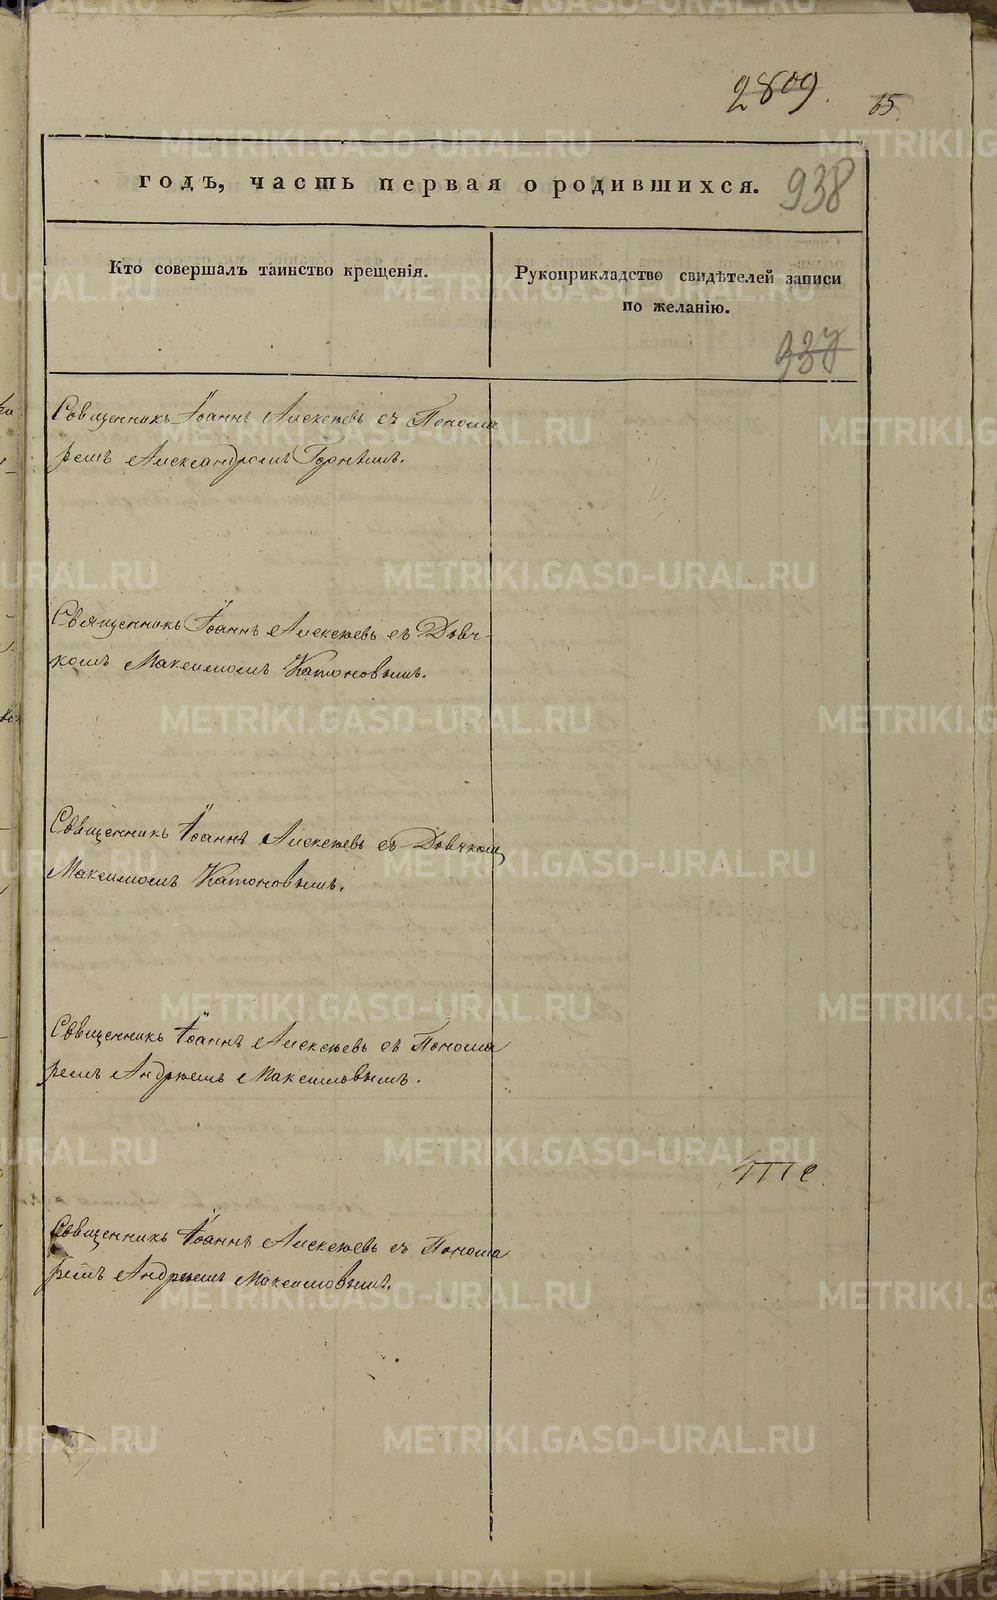 2809.
65
годъ, часть первая о родившихся.
938
Кто совершалъ таинство крещенія.
Рукоприкладство свидѣтелей записи
по желанію.
937
Священникъ Іоаннъ Алексѣевъ съ Понома
ремъ Александромъ
Священникъ Іоаннъ Алексѣевъ съ Дьяч-
комъ Максимомъ Катоновымъ.
Священникъ Іоаннъ Алексѣевъ съ Дьячкомъ
Максимомъ Катоновымъ.
Священникъ Іоаннъ Алексѣевъ съ Понома
ремъ Андреемъ Максимовымъ.
Священникъ Іоаннъ Алексѣевъ съ Понома
ремъ Андреемъ Максимовымъ.
METRIKI.GASO-URAL.RU